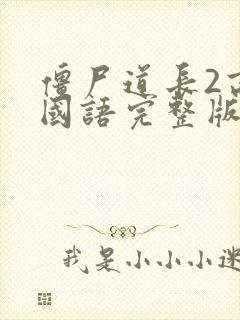 僵尸道长2
國語完整版
我是小小小迷